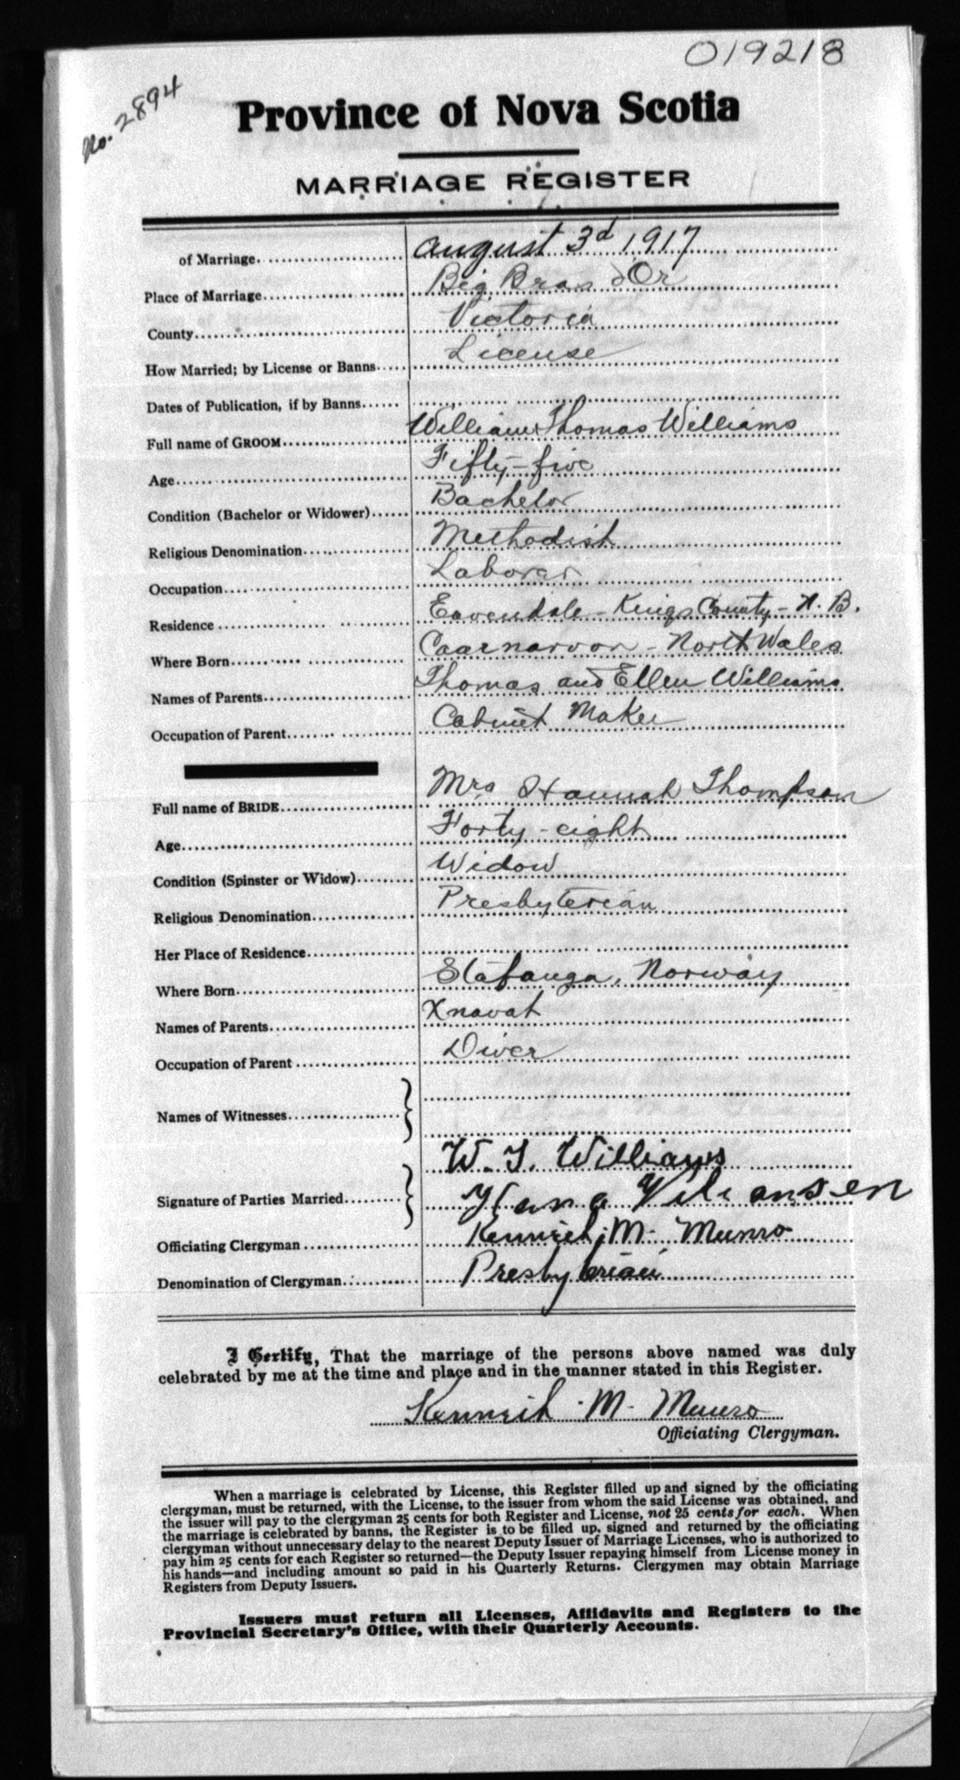 019218
No. 2894
Province of Nova Scotia
MARRIAGE REGISTER
of Marriage. August 3d 1917
Place of Marriage Big Bras d'Or
County Victoria
How Married; by License or Banns License
Dates of Publication, if by Banns
Full name of GROOM William Thomas Williams
Age Fifty-five
Condition (Bachelor or Widower) Bachelor
Religious Denomination Methodist
Occupation Laborer
Residence Kings County - N. B.
Where Born Caarnarvon - North Wales
Names of Parents Thomas and Ellen Williams
Occupation of Parent Cabinet Maker
Full name of BRIDE Mrs Hannah Thompson
Age Forty-eight
Condition (Spinster or Widow) Widow
Religious Denomination Presbyterian
Her Place of Residence
Where Born Stafanga, Norway
Names of Parents
Occupation of Parent Diver
Names of Witnesses
W. T. Williams
Signature of Parties Married Hana
Officiating Clergyman M. Munro
Denomination of Clergyman Presbyterian
I Certify, That the marriage of the persons above named was duly
celebrated by me at the time and place and in the manner stated in this Register.
M. Munro
Officiating Clergyman.
When a marriage is celebrated by License, this Register filled up and signed by the officiating
clergyman, must be returned, with the License, to the issuer from whom the said License was obtained, and
the issuer will pay to the clergyman 25 cents for both Register and License, not 25 cents for each. When
the marriage is celebrated by banns, the Register is to be filled up, signed and returned by the officiating
clergyman without unnecessary delay to the nearest Deputy Issuer of Marriage Licenses, who is authorized to
pay him 25 cents for each Register so returned—the Deputy Issuer repaying himself from License money in
his hands—and including amount so paid in his Quarterly Returns. Clergymen may obtain Marriage
Registers from Deputy Issuers.
Issuers must return all Licenses, Affidavits and Registers to the
Provincial Secretary's Office, with their Quarterly Accounts.